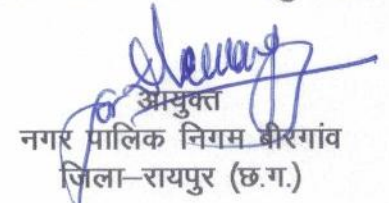 आयुक्त
नगर पालिक निगम बीरगांव
जिला–रायपुर (छ.ग.)